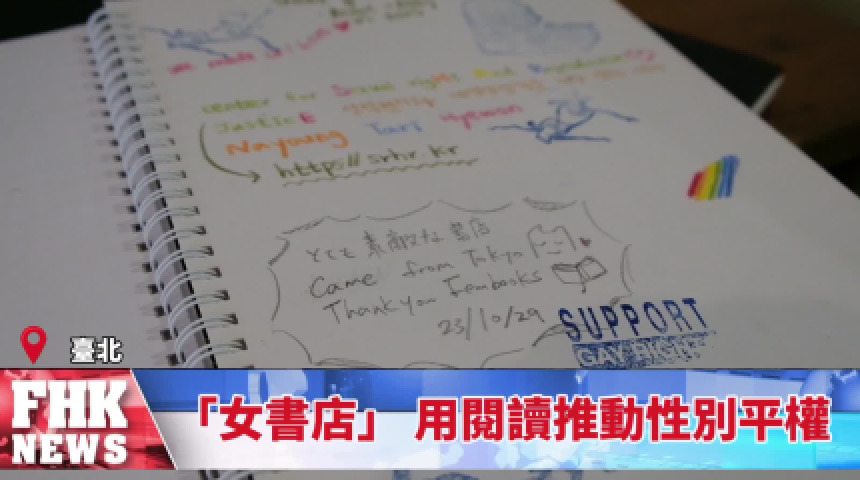 center for Sexual rights And Reproductive
Justice
Nayoung Tari Hyemin
https://srhr.kr
とても素敵な書店
Came from Tokyo
Thank you Fembooks
23/10/29
SUPPORT
GAY RIGHT
臺北
FHK
NEWS
「女書店」 用閱讀推動性別平權